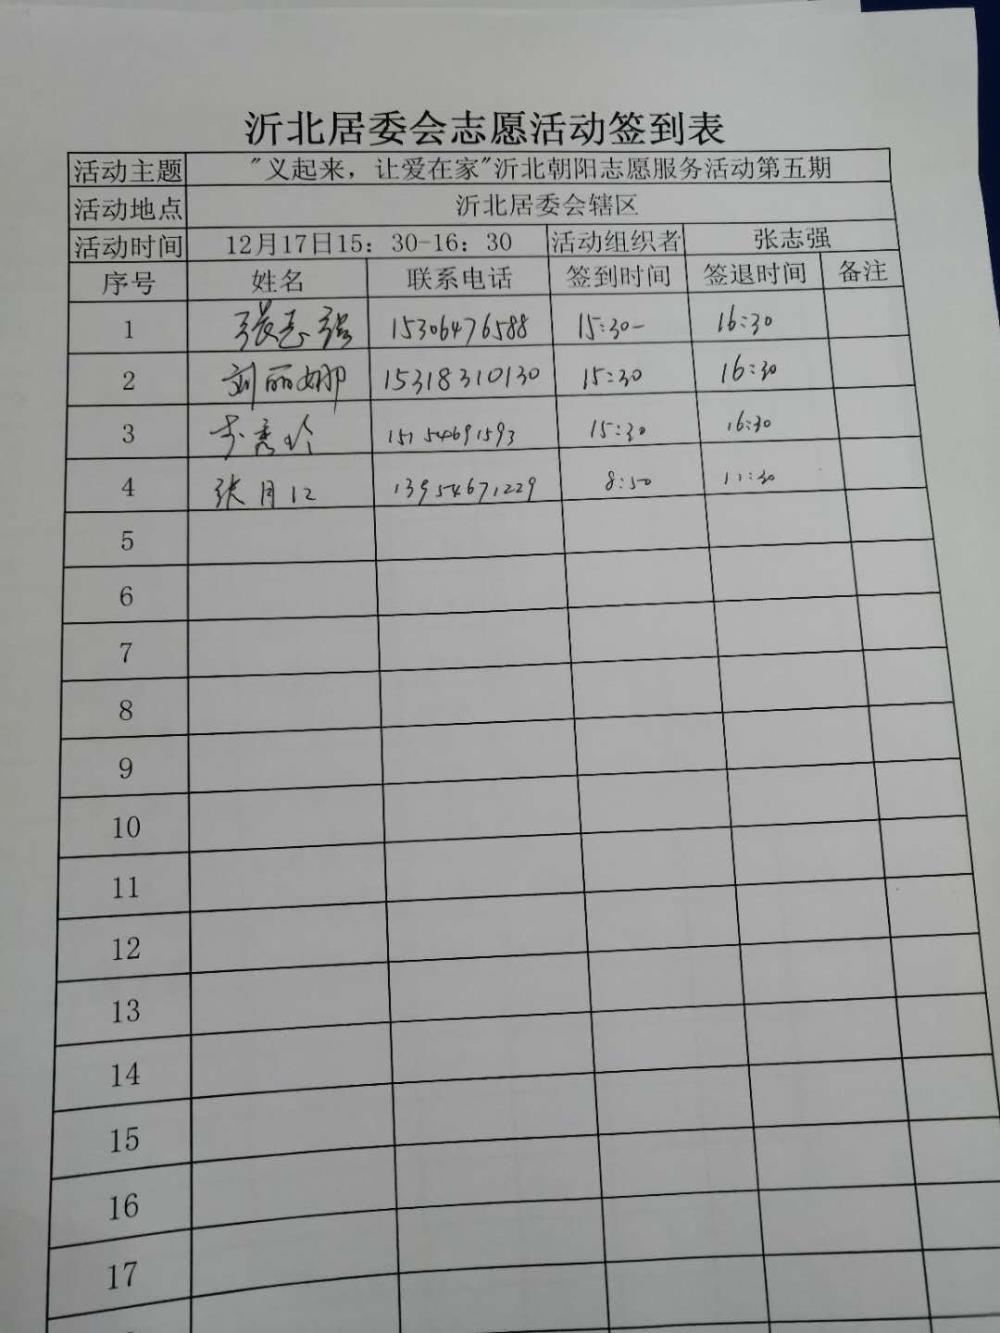 沂北居委会志愿活动签到表
活动主题 "义起来，让爱在家"沂北朝阳志愿服务活动第五期
活动地点 沂北居委会辖区
活动时间 12月17日15：30-16：30 活动组织者 张志强
序号 姓名 联系电话 签到时间 签退时间 备注
1 张志强 15306476588 15:30- 16:30
2 刘丽娜 15318310130 15:30 16:30
3 李秀玲 15154691593 15:30 16:30
4 张月江 13954671229 8:50 11:30
5
6
7
8
9
10
11
12
13
14
15
16
17